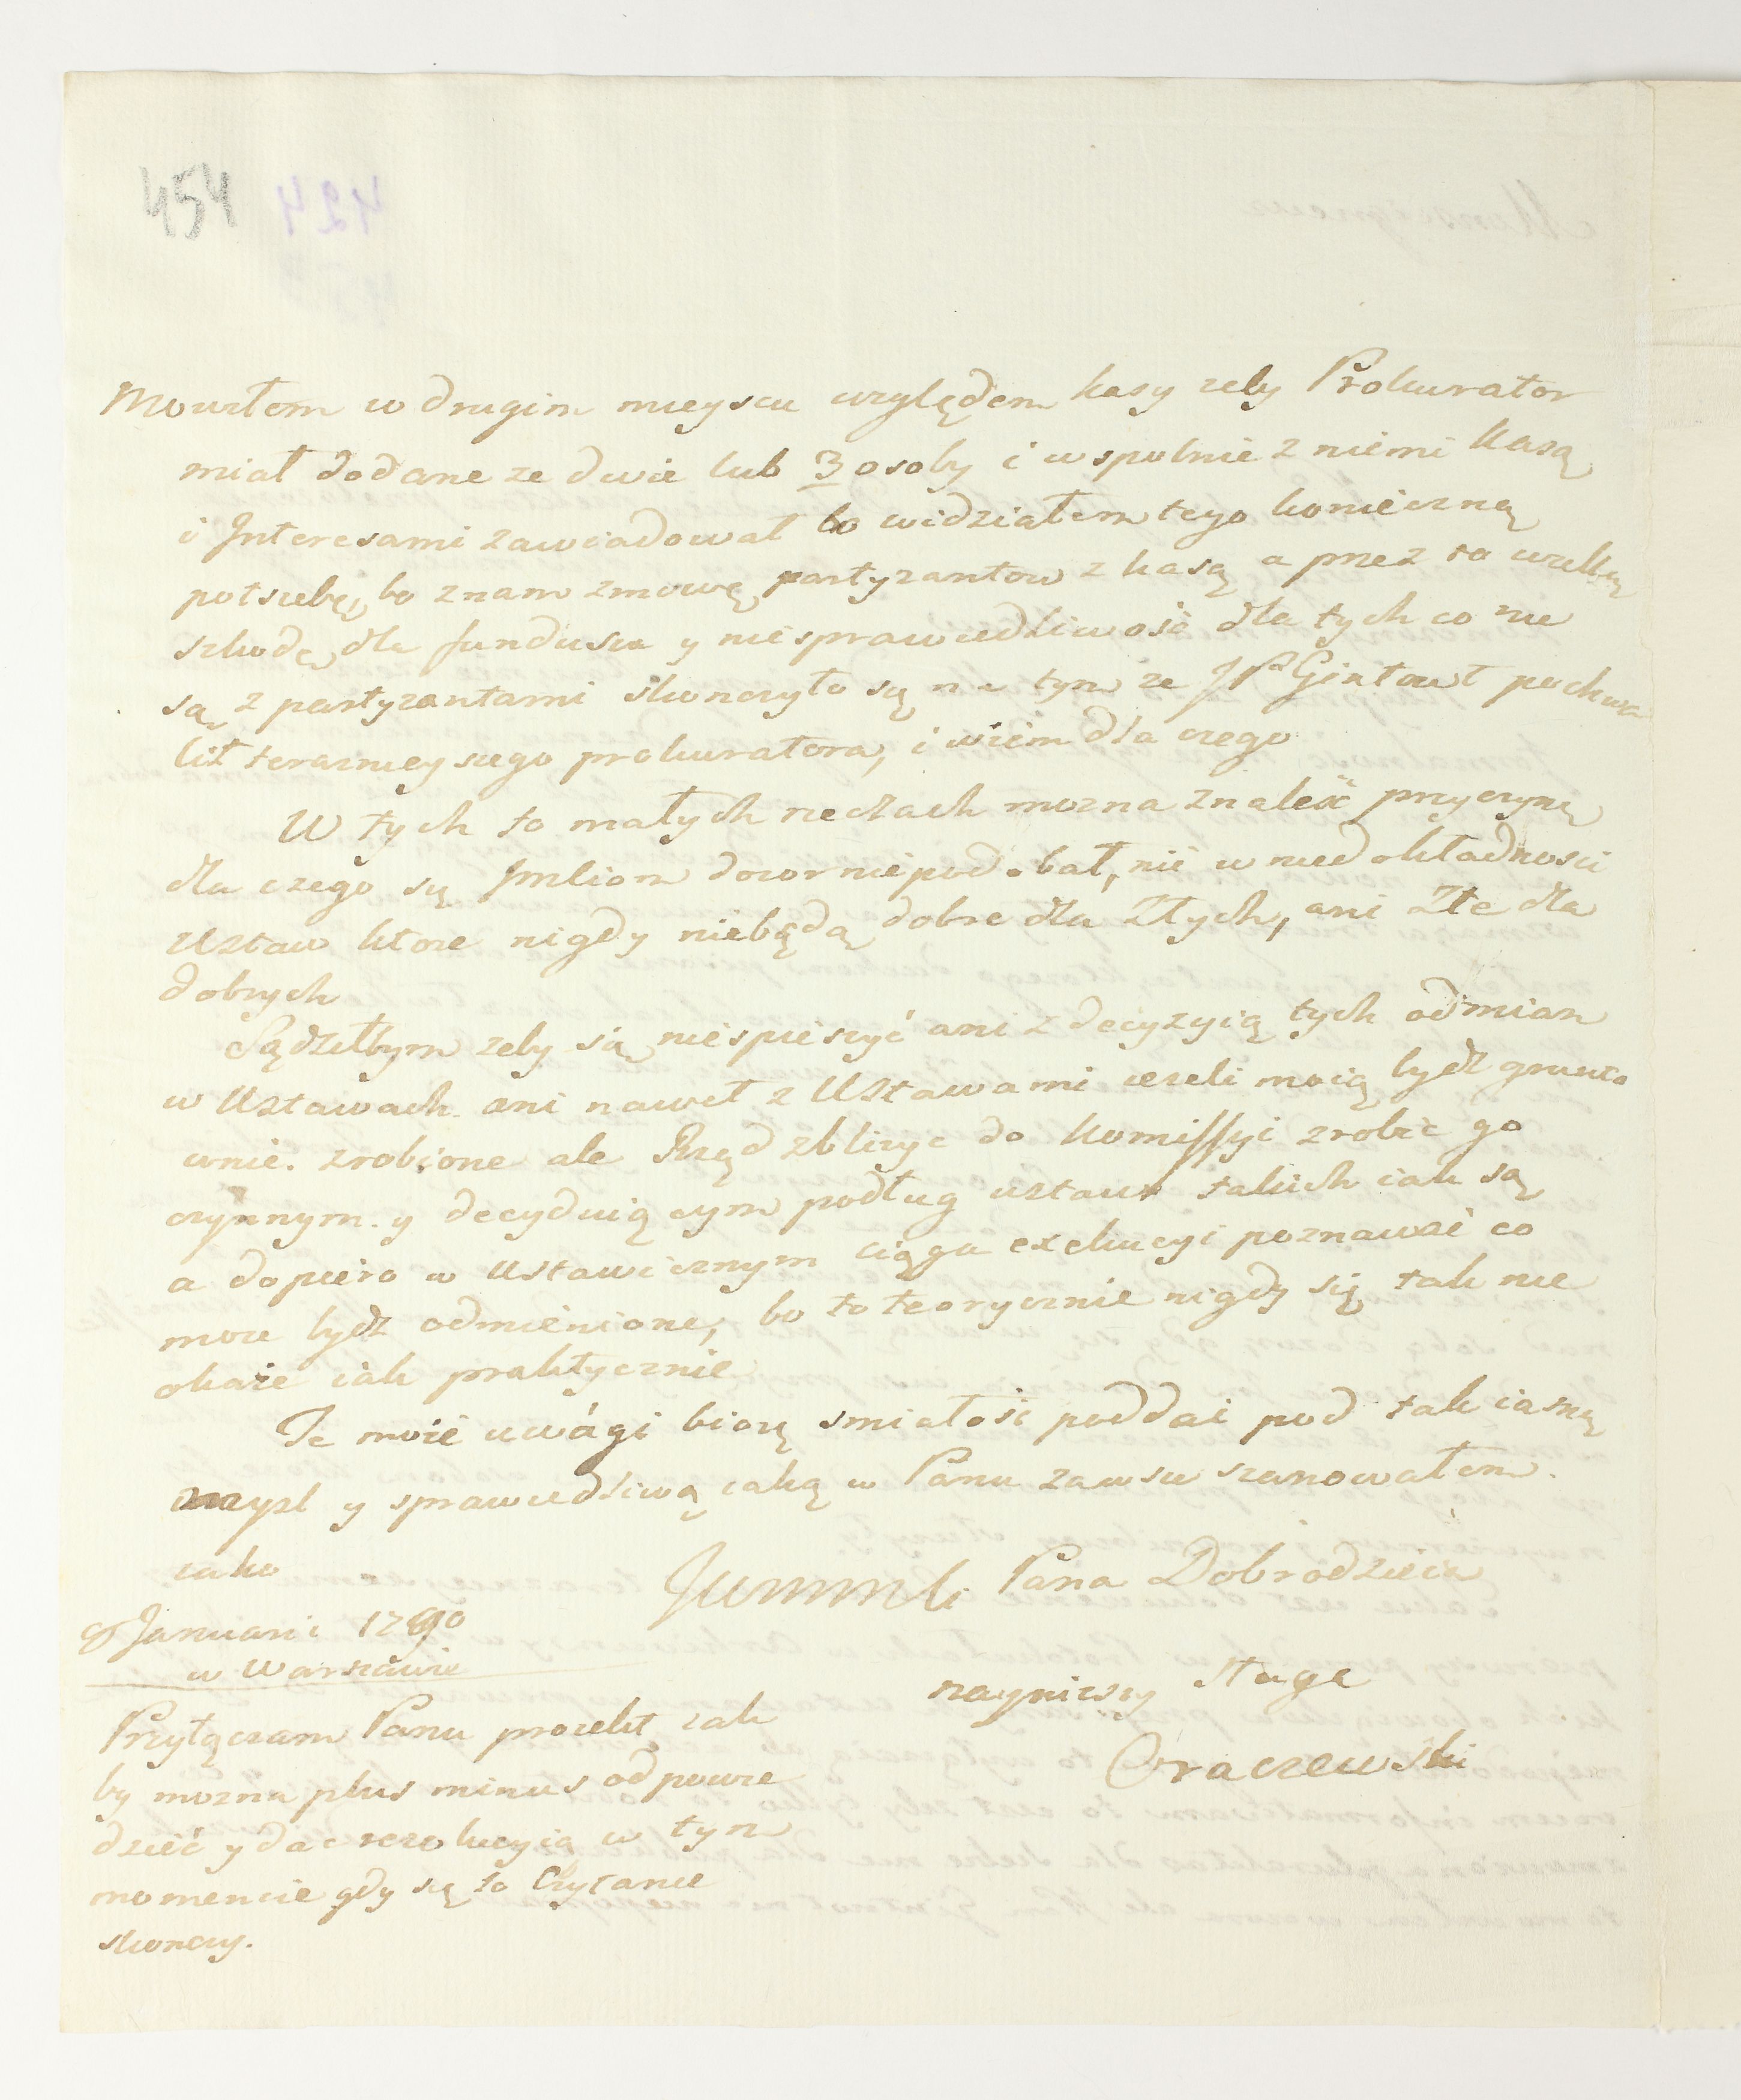 454
Mowiłem w drugim mieyscu względem kasy zeby Prokurator
miał dodane ze dwie lub 3 osoby i wspolnie z niemi kasą
i Interesami zawiadował bo widziałem tego konieczną
potrzebę, bo znam zmowę partyzantow z kasą a przez to wielką
szkodę dla funduszu y niesprawiedliwość dla tych co nie
są z partyzantami skonczyło się na tym ze JP Gintowt pochwa
lił teraznieyszego prokuratora, i wiem dla czego
W tych to małych rzeczach mozna znaleść przyczynę
dla czego się dozor niepodobał, nie w niedokładnosci
Ustaw ktore nigdy niebędą dobre dla Złych, ani Złe dla
dobrych
Sądziłbym zeby się niespieszyć ani z decyzyią tych odmian
w Ustawach ani nawet z Ustawami iezeli maią bydź grunto
wnie. zrobione ale Rząd zblizyc do Komissyi zrobić go
czynnym. y decyduiącym podług ustaw takich iak są
a dopiero w ustawicznym ciągu exekucyi poznawać co
moze bydź odmienione, bo to teorycznie nigdy się tak nie
okaże iak praktycznie
Te moie uwagi biorę smiałość poddać pod tak iasną
mysl y sprawiedliwą iaką w Panu zawsze szanowałem.
iako
Pana Dobrodzieia
9 Januarii 1790
w Warszawie
nayniższy Sługa
Oraczewski
Przyłączam Panu proiekt iak
by mozna plus minus odpowie
dzieć y dać rezolucyią w tym
momencie gdy się to Czytanie
skonczy.